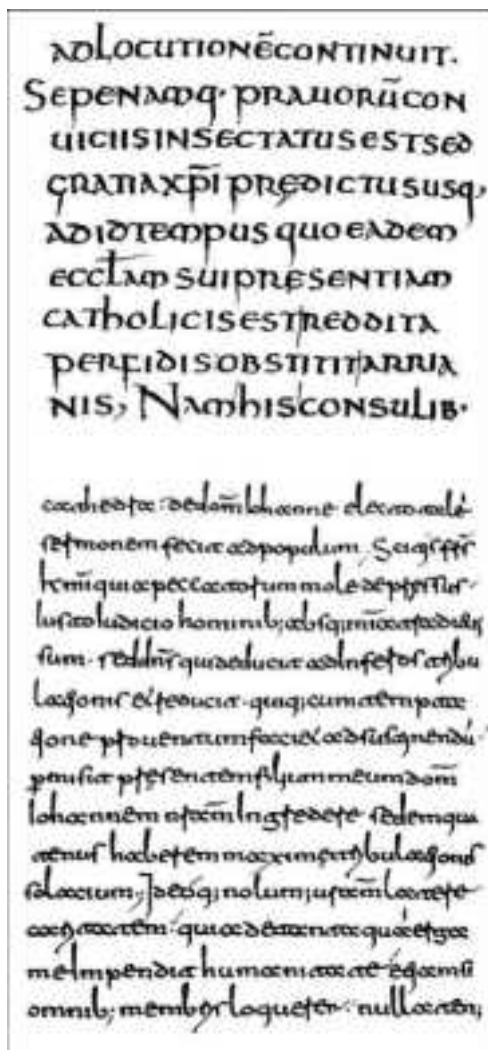 adlocutionēcontinuit.
Sepenamq· prauorūcon
uiciisinsectatusestsed
gratiaxp̄i predictususq,
adidtempus quoeadem
eccłam suipresentiam
catholicisestreddita
perfidisobstititarria
nis, Namhisconsulib·
cathedra: dedom̄ Iohanne electo talē
sermonem fecit adpopulum. Scitis frs̄
quia peccatorum mole depressus
Iudicio hominib; absq; mīa
sum. seddn̄s quideducit adInferos atribu
lationis et reducit. quiq; cum tempta
tione prouentum faciet adsustinendū.
permisit presentem filium meum dom̄
Iohannem Ingredere sedem qua
tenus haberem maxime tribulationis
solacium. Ideoq; nolum; latere
caritatem: quia
me Impendit humanitate
omnib; membris loquerer. nullaten;